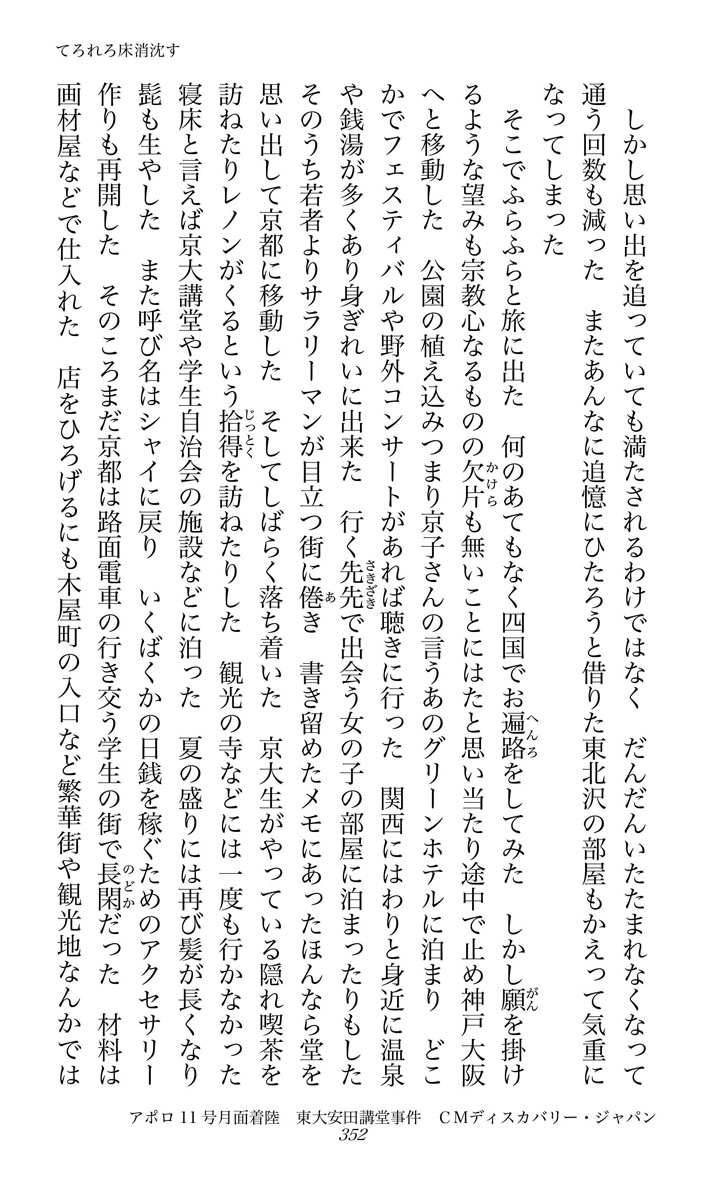 てろれろ床消沈す
　しかし思い出を追っていても満たされるわけではなく　だんだんいたたまれなくなって
通う回数も減った　またあんなに追憶にひたろうと借りた東北沢の部屋もかえって気重に
なってしまった
　そこでふらふらと旅に出た　何のあてもなく四国でお遍路へんろをしてみた　しかし願がんを掛け
るような望みも宗教心なるものの欠片かけらも無いことにはたと思い当たり途中で止め神戸大阪
へと移動した　公園の植え込みつまり京子さんの言うあのグリーンホテルに泊まり　どこ
かでフェスティバルや野外コンサートがあれば聴きに行った　関西にはわりと身近に温泉
や銭湯が多くあり身ぎれいに出来た　行く先先さきざきで出会う女の子の部屋に泊まったりもした
そのうち若者よりサラリーマンが目立つ街に倦あき　書き留めたメモにあったほんなら堂を
思い出して京都に移動した　そしてしばらく落ち着いた　京大生がやっている隠れ喫茶を
訪ねたりレノンがくるという拾得じっとくを訪ねたりした　観光の寺などには一度も行かなかった
寝床と言えば京大講堂や学生自治会の施設などに泊った　夏の盛りには再び髪が長くなり
髭も生やした　また呼び名はシャイに戻り　いくばくかの日銭を稼ぐためのアクセサリー
作りも再開した　そのころまだ京都は路面電車の行き交う学生の街で長閑のどかだった　材料は
画材屋などで仕入れた　店をひろげるにも木屋町の入口など繁華街や観光地なんかでは
アポロ 11 号月面着陸　東大安田講堂事件　ＣＭディスカバリー・ジャパン
352